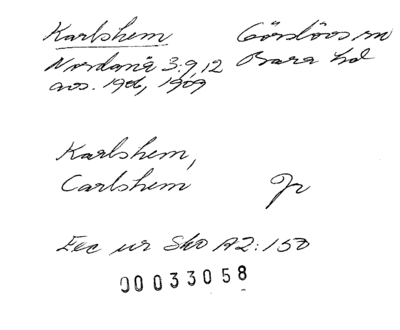 Karlshem Görslövs sn
Nordanå 3:9,12 Bara hd
avs. 1906, 1909
Karlshem,
Carlshem Jr
Exc ur Sko A2:150
00033058